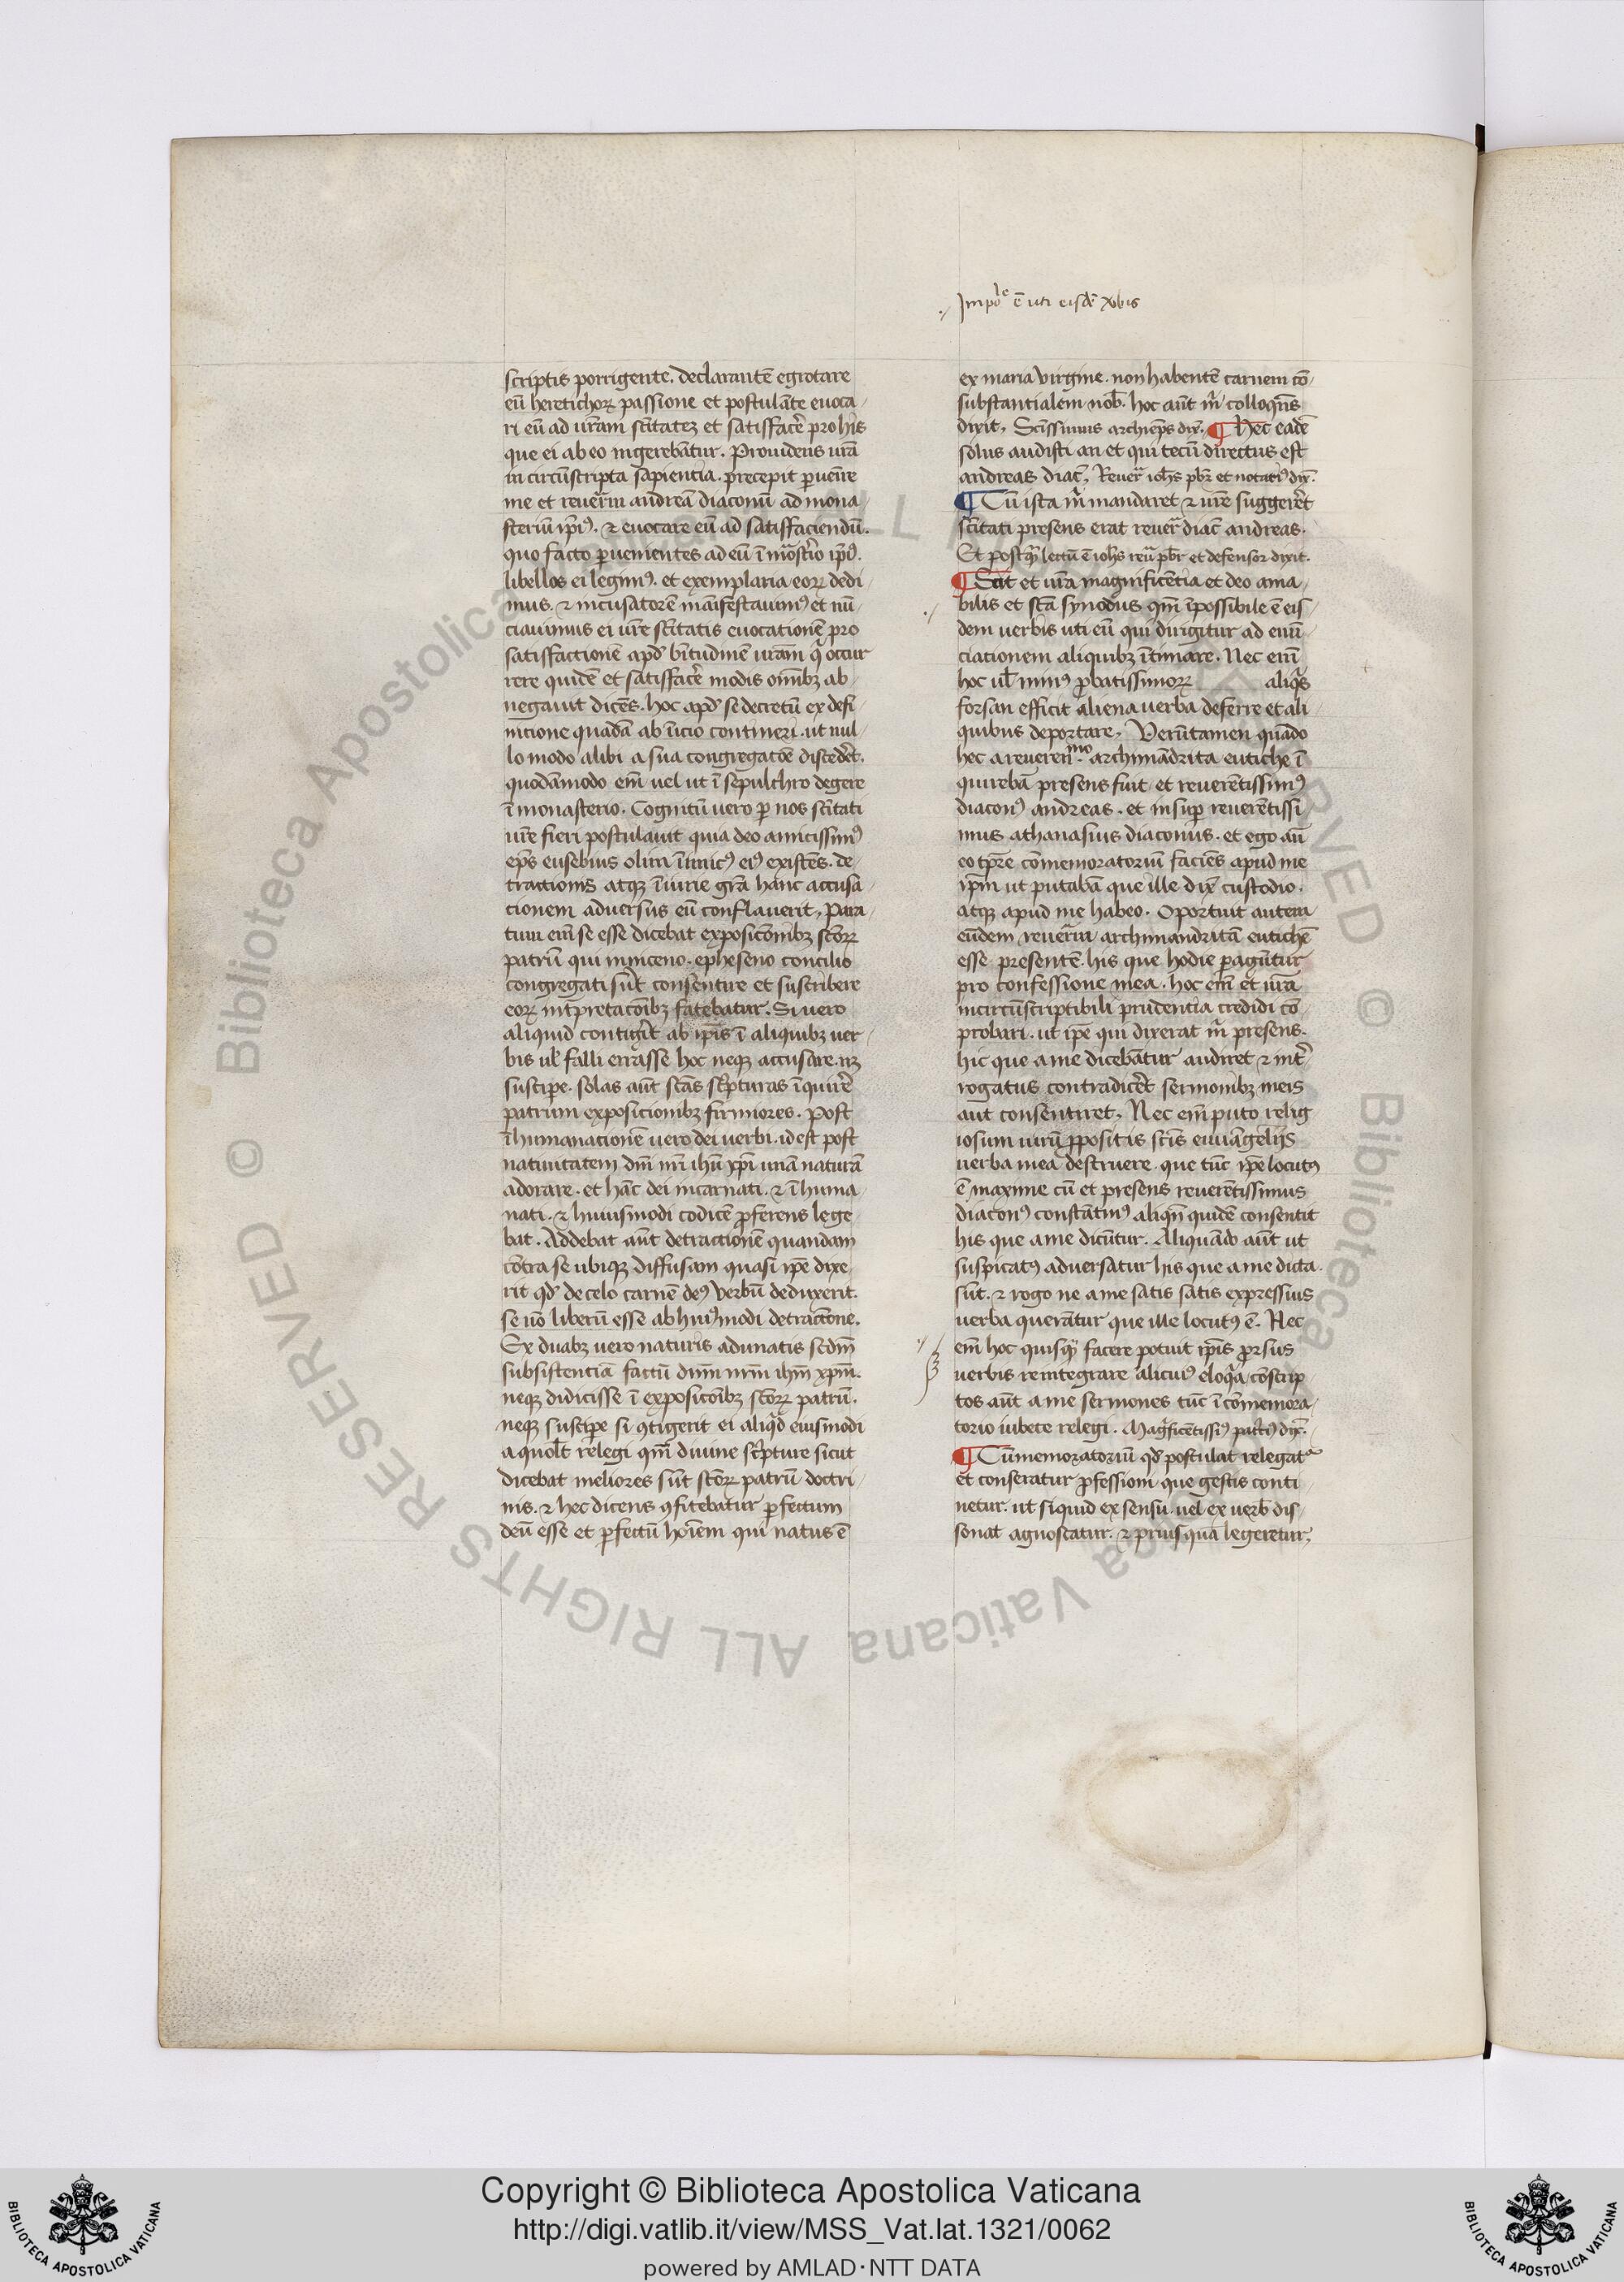 ./ Impole ē uti eisdē verbis
scriptis porrigente. declarantē egrotare
eū heretichoꝝ passione et postulāte euoca/
ri eū ad ur̄am sc̄itateꝫ et satisfac̄e pro his
que ei ab eo ingerebātur. Prouidens ur̄a
in circūscripta sapientia. precepit ꝑuenīre
me et reuer̄m andreā diaconū ad mona/
steriū ip̄iꝰ. ⁊ euocare eū ad satisfaciendū.
quo facto ꝑuenientes ad eū ī mōast̄io ip̄iꝰ.
libellos ei legimꝰ. et exemplaria eoꝝ dedi/
mus. ⁊ incusatorē maīfestauimꝰ et nū/
ciauimus ei ur̄e sc̄itatis euocationē pro
satisfactionē apd̄ b̄itudinē uram̄ qͥ occur
rere quidē et satisfac̄e modis oīmbꝫ ab/
negauit dicēs. hoc apd̄ se decretū ex defi/
nicione quadā ab īicio contineri. ut nul/
lo modo alibi a sua congregatōe discedet̄.
quodāmodo em̄ uel ut ī sepulchro degere
ī monasterio. Cognitū uero ꝑ nos sc̄itati
ur̄e fieri postulauit quia deo amicissimꝰ
ep̄s eusebius olim īimicꝰ eiꝰ existēs. de/
tractionis atqꝫ īiurie gr̄a hanc accusa/
cionem aduersus eū conflauerit, Para/
tum em̄ se esse dicebat exposicōibꝫ sc̄oꝝ
patrū qui in niceno. epheseno concilio
congregati sūt consentire et suscribere
eoꝝ int̄pretacōibꝫ fatebatur. Si uero
aliquid contigīt ab ip̄is ī aliquibꝫ uer/
bis ul̄ falli errasse hoc neqꝫ accusare. nꝫ
suscipe. solas aūt scās sc̄pturas īquirē
patrum exposicionibꝫ firmiores. Post
īhumanacionē uero dei uerbi. id est post
natiuitatem dn̄i nr̄i ih̄u xp̄i unā naturā
adorare. et hāc dei incarnati. ⁊ īhuma/
nati. ⁊ huiusmodi codicē ꝓferens lege/
bat. Addebat aūt detractionē quandam
cōtra se ubiqꝫ diffusam quasi ip̄e dixe/
rit qd̄ de celo carnē deꝰ uerbū deduxerit.
se uō liberū esse ab huiꝰmodi detractione.
Ex duabꝫ uero naturis adunatis sedm̄
subsistentiā factū dn̄m nr̄m ih̄m xp̄m.
neqꝫ didicisse ī exposicōibꝫ sc̄oꝝ patrū.
neqꝫ suscipe si ꝯtigerit ei aliqͥd eiusmodi
a quol̄t relegi qm̄ diuine sc̄pture sicut
dicebat meliores sūt sc̄oꝝ patrū doctri/
nis. ⁊ hec dicens ꝯfitebatur ꝑfectum
deū esse et ꝑfectū hoīem qui natus ē
ex maria uirgine. non habentē carnem cō/
substantialem nob̄. hoc aūt m̄ colloqn̄s
dixit, Sc̄issimus archiep̄s dix̄. ¶ Hec eadē
solus audisti an et qui tecū directus est
andreas diac̄, Reuer̄ ioh̄s pb̄r et notariꝰ dix̄.
¶ Cū ista m̄ mandaret ⁊ ur̄e suggeret̄
sc̄itati presens erat reuer̄ diac̄ andreas.
Et postqͣ lectū ē ioh̄s reu̅ pb̄r et defensor dixit.
¶ Scit et ur̄a magnificētia et deo ama/
./ bilis et scā synodus qm̄ īpossibile ē eis/
dem uerbis uti eū qui dirigitur ad enū/
ciationem aliquibꝫ ītimare. Nec em̄
hoc ul̄ nimiꝰ ꝓbatissimoꝝ aliqͥs
forsan efficit aliena uerba deferre et ali/
quibus deportare, Verūtamen quādo
hec a reueren̄mo archimādrita eutiche ī
quirebā presens fuit et reuerētissimꝰ
diaconꝰ andreas. et insuꝑ reuerētissi
mus athanasius diaconus. et ego aū
eo tp̄re cōmemoratoriū faciēs apud me
ip̄m ut putabā que ille dix̄ custodio.
atqꝫ apud me habeo. Oportuit autem
eūdem reuer̄m archimandritā eutichē
esse presentē. his que hodie ꝑagūtur
pro confessione mea. hoc em̄ et ur̄a
incircūscriptibili prudentia credidi cō/
probari. ut ip̄e qui dixerat m̄ presens.
hic que a me dicebātur audiret ⁊ int̄
rogatus contradicet̄ sermonibꝫ meis
aut consentiret, Nec em̄ puto relig
iosum uirū ꝓpositis sc̄is euāngelijs
uerba mea destruere. que tūc ip̄e locutꝰ
ē maxime cū et presens reuerētissimus
diaconꝰ constātinꝰ aliqn̄ quidē consentit
his que a me dicūtur. Aliquādo aūt ut
suspicatꝰ aduersatur his que a me dicta
sūt. ⁊ rogo ne a me satis satis expressius
uerba querātur que ille locutꝰ ē. Nec
./ em̄ hoc quisqͣ facere potuit ip̄is ꝓrsus
uerbis reintegrare alicuiꝰ eloqͥa cōscrip
tos aūt a me sermones tūc ī cōmemora/
torio iubete relegi. Magͥficētissīꝰ patͥciꝰ dix̄.
¶ Cūmemoratoriū qd̄ postulat relegatͬ
et conferatur ꝓfessioni que gestis conti
netur. ut si quid ex sensu uel ex uerb̄ dis/
sonat agnoscatur. ⁊ priusquā legeretur,
Copyright © Biblioteca Apostolica Vaticana
http://digi.vatlib.it/view/MSS_Vat.lat.1321/0062
powered by AMLAD·NTT DATA
BIBLIOTECA APOSTOLICA VATICANA
BIBLIOTECA APOSTOLICA VATICANA
© Biblioteca Apostolica Vaticana ALL RIGHTS RESERVED